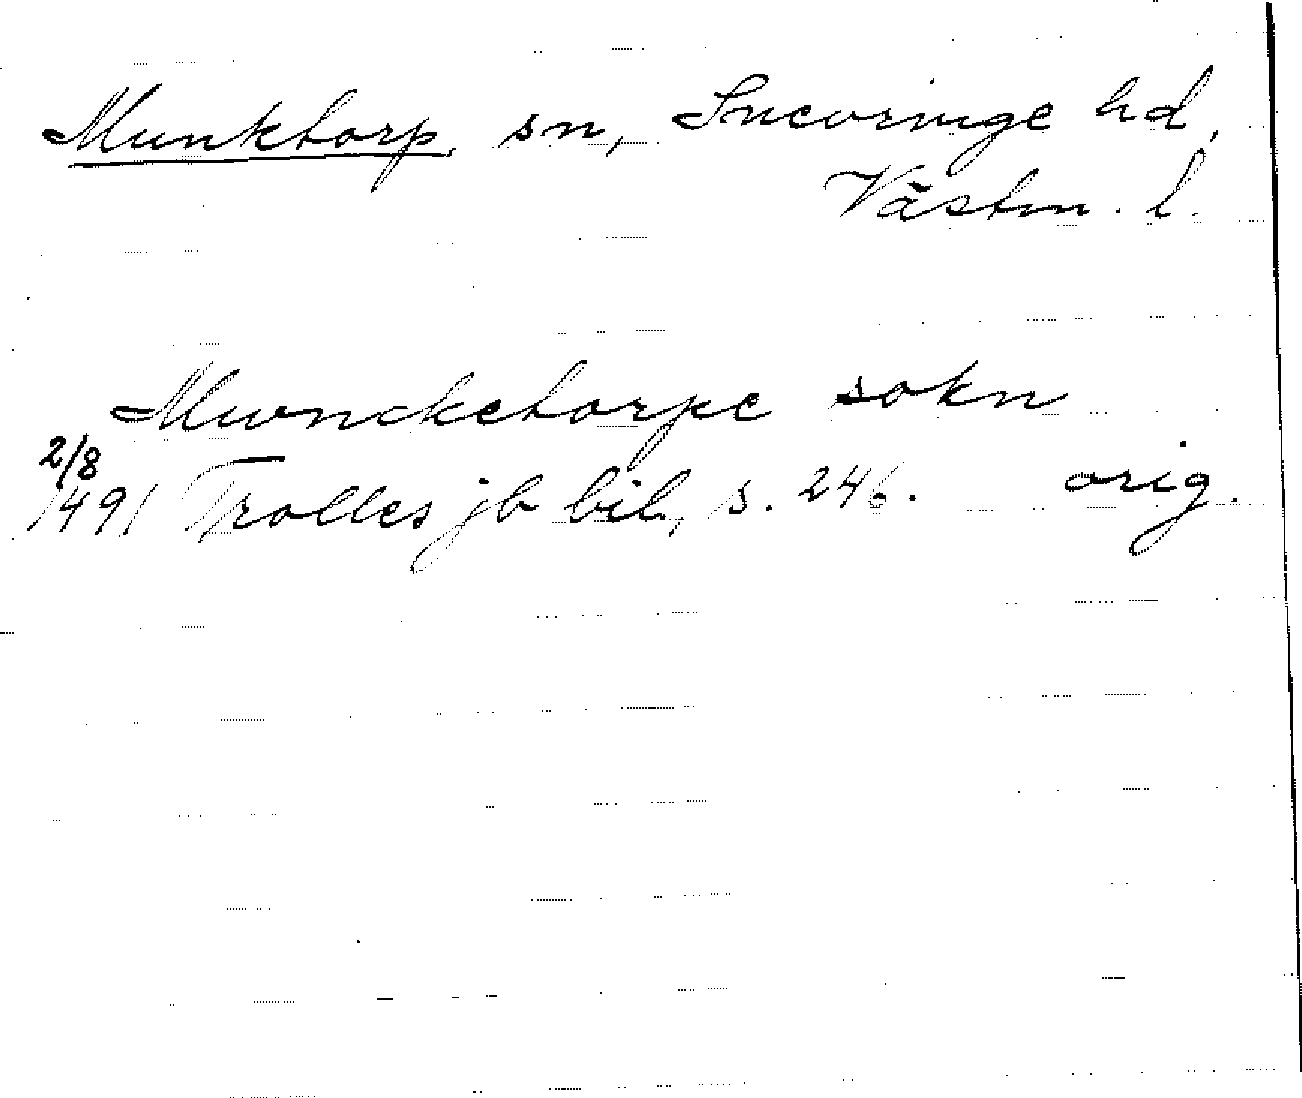 Munktorp, sn, Snevringe hd,
Västm. l.
Mwncketorpe sokn
2/8
1491 Trolles jb bil., s. 246. orig.